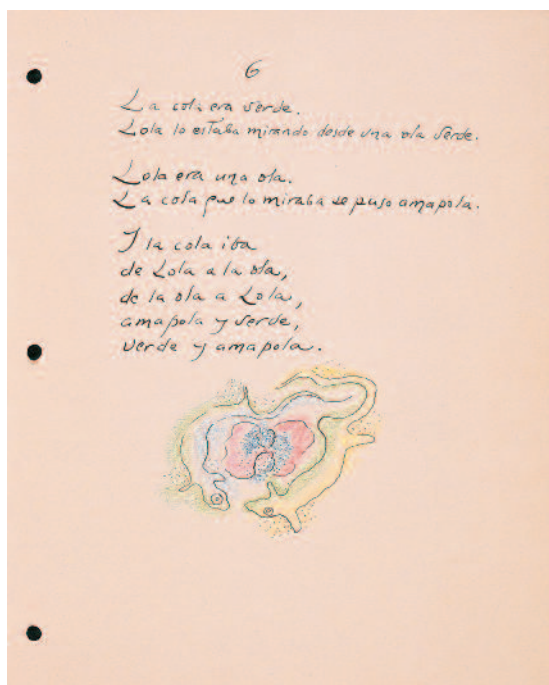 6
La cola era verde.
Lola lo estaba mirando desde una ola verde.
Lola era una ola.
La cola que lo miraba se puso amapola.
Y la cola iba
de Lola a la ola,
de la ola a Lola,
amapola y verde,
verde y amapola.